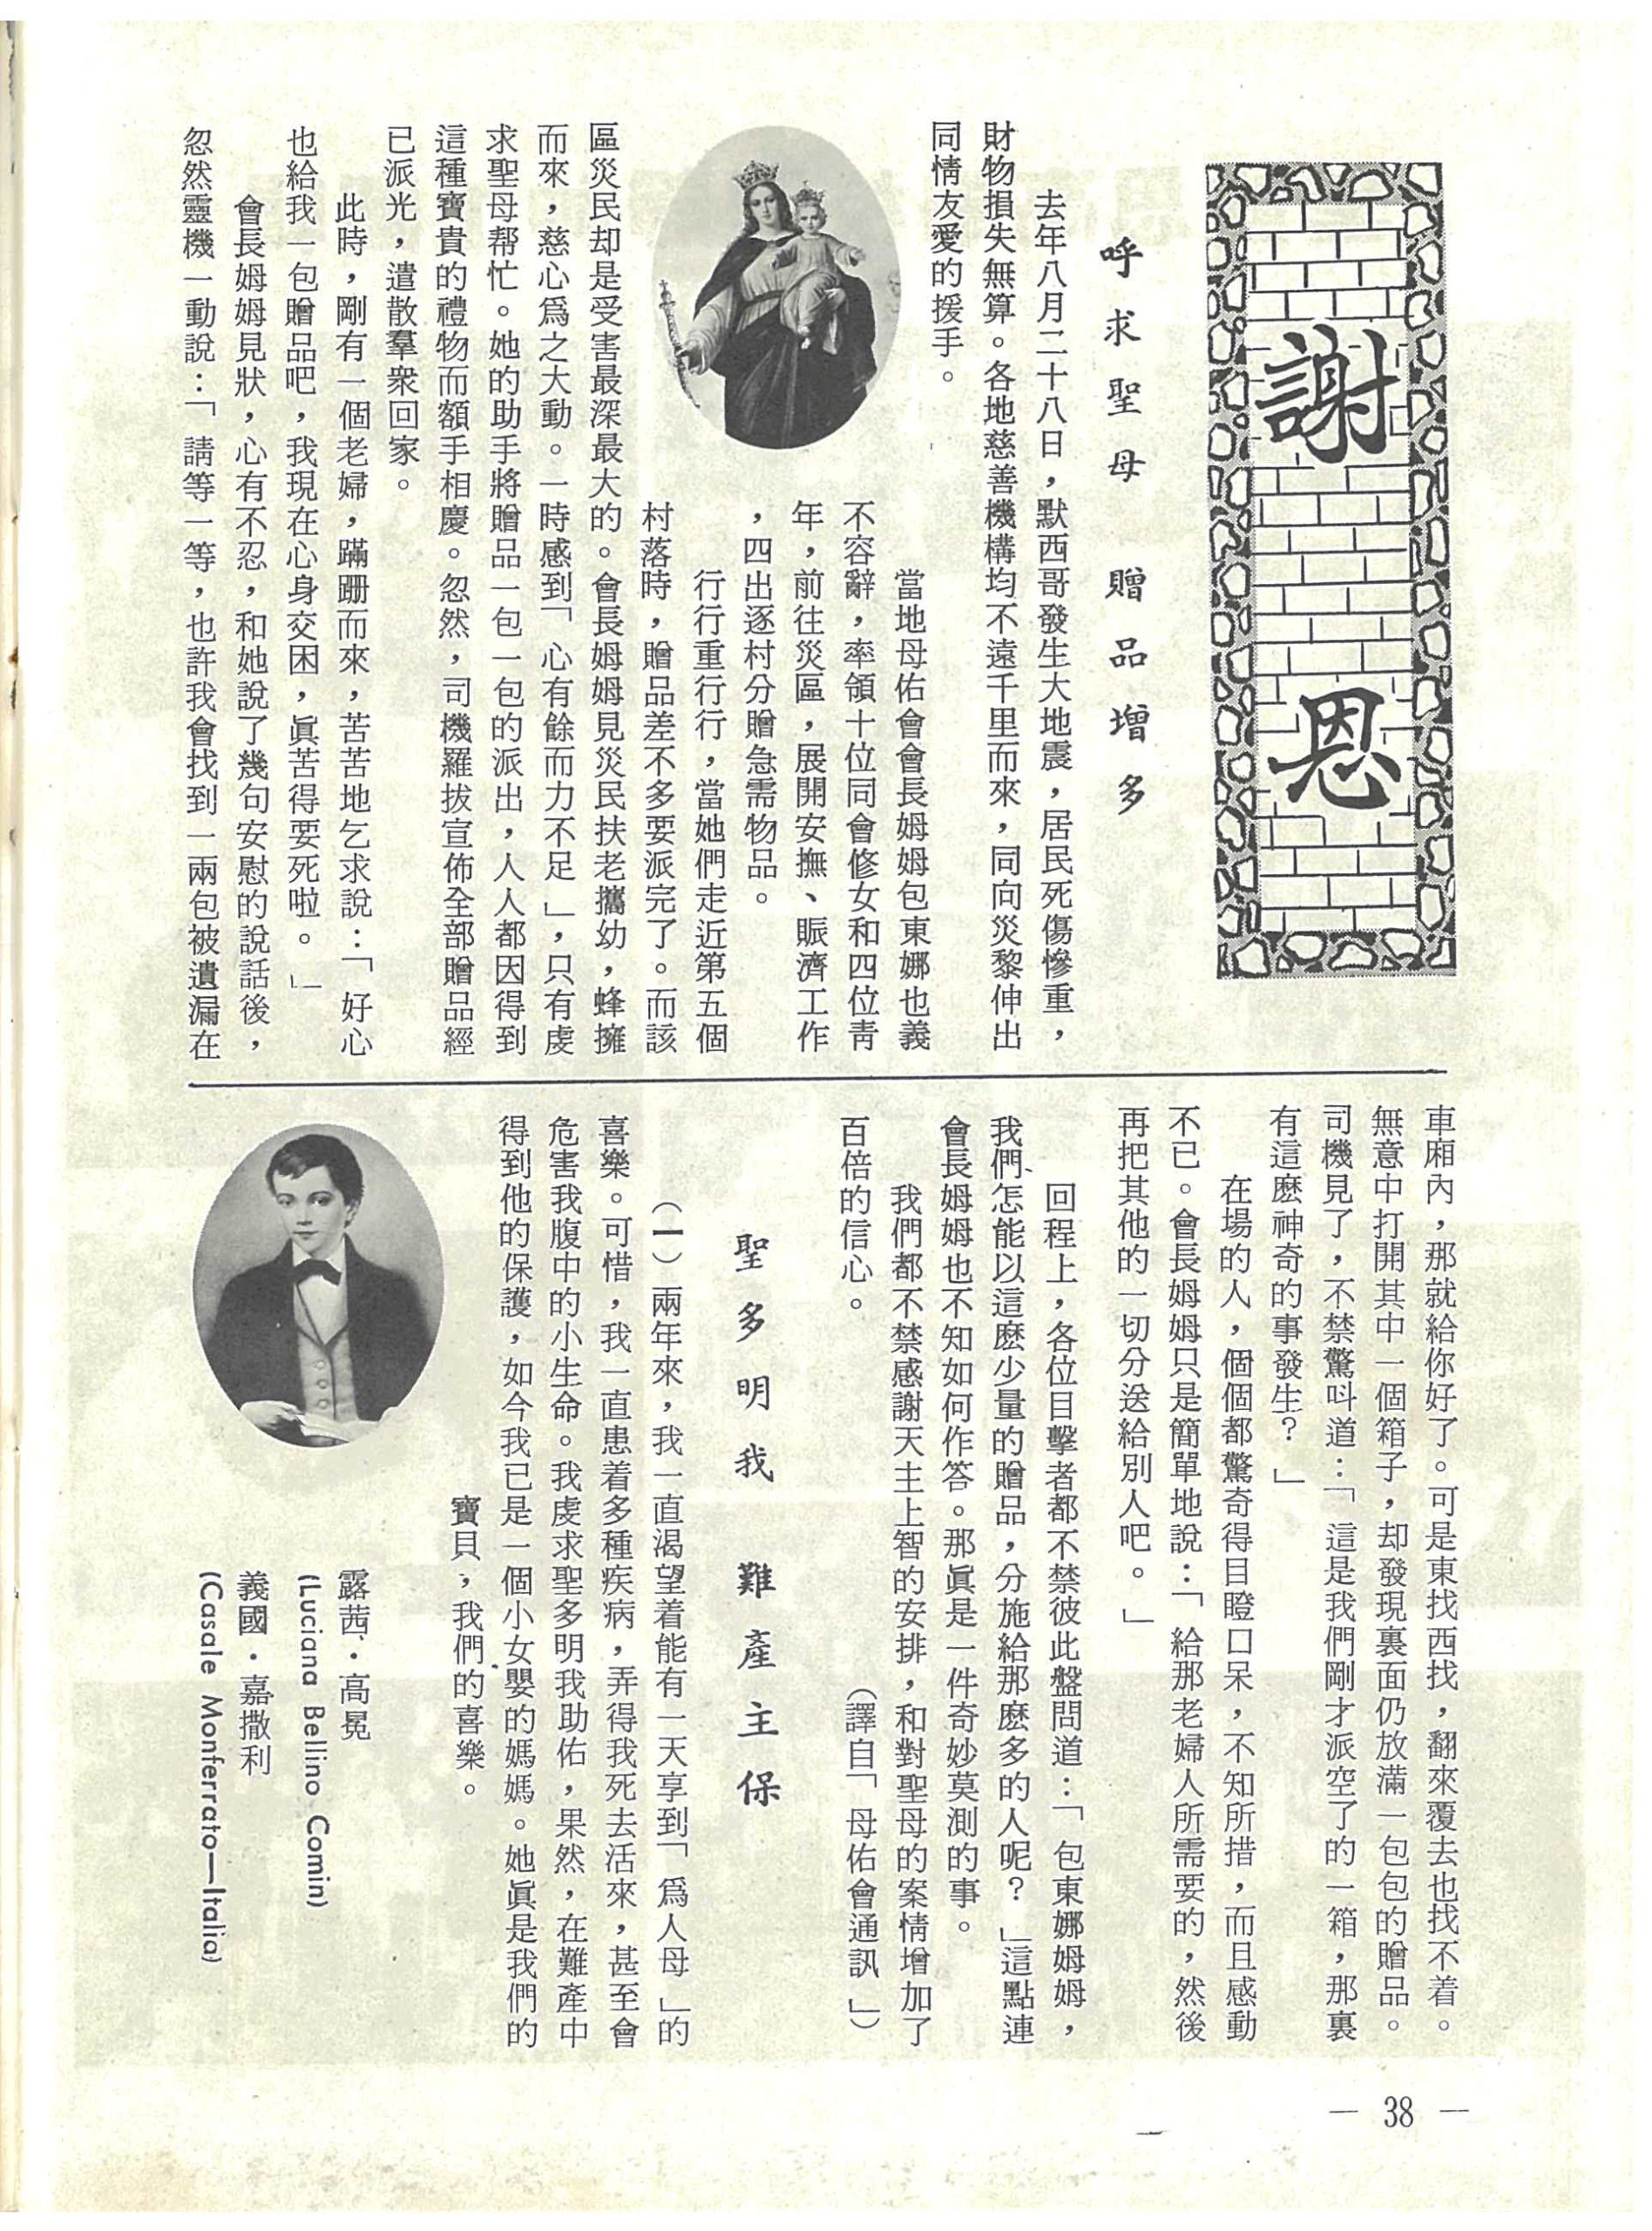 謝恩
呼求聖母　贈品增多
去年八月二十八日，默西哥發生大地震，居民死傷慘重，
財物損失無算。各地慈善機構均不遠千里而來，同向災黎伸出
同情友愛的援手。
當地母佑會會長姆姆包東娜也義
不容辭，率領十位同會修女和四位靑
年，前往災區，展開安撫、賑濟工作
，四出逐村分贈急需物品。
行行重行行，當她們走近第五個
村落時，贈品差不多要派完了。而該
區災民却是受害最深最大的。會長姆姆見災民扶老攜幼，蜂擁
而來，慈心爲之大動。一時感到「心有餘而力不足」，只有虔
求聖母帮忙。她的助手將贈品一包一包的派出，人人都因得到
這種寶貴的禮物而額手相慶。忽然，司機羅拔宣佈全部贈品經
已派光，遣散羣衆回家。
此時，剛有一個老婦，蹣跚而來，苦苦地乞求說：「好心
也給我一包贈品吧，我現在心身交困，眞苦得要死啦。」
會長姆姆見狀，心有不忍，和她說了幾句安慰的說話後，
忽然靈機一動說：「請等一等，也許我會找到一兩包被遺漏在
車廂內，那就給你好了。可是東找西找，翻來覆去也找不着。
無意中打開其中一個箱子，却發現裏面仍放滿一包包的贈品。
司機見了，不禁驚呌道：「這是我們剛才派空了的一箱，那裏
有這麽神奇的事發生？」
在場的人，個個都驚奇得目瞪口呆，不知所措，而且感動
不已。會長姆姆只是簡單地說：「給那老婦人所需要的，然後
再把其他的一切分送給別人吧。」
回程上，各位目擊者都不禁彼此盤問道：「包東娜姆姆，
我們怎能以這麽少量的贈品，分施給那麽多的人呢？」這點連
會長姆姆也不知如何作答。那眞是一件奇妙莫測的事。
我們都不禁感謝天主上智的安排，和對聖母的案情增加了
百倍的信心。　（譯自「母佑會通訊」）
聖多明我　難產主保
（一）兩年來，我一直渴望着能有一天享到「爲人母」的
喜樂。可惜，我一直患着多種疾病，弄得我死去活來，甚至會
危害我腹中的小生命。我虔求聖多明我助佑，果然，在難產中
得到他的保護，如今我已是一個小女嬰的媽媽。她眞是我們的
寶貝，我們的喜樂。
露茜・高冕
(Luciana Bellino Comin)
義國・嘉撒利
(Casale Monferrato—Italia)
— 38 —